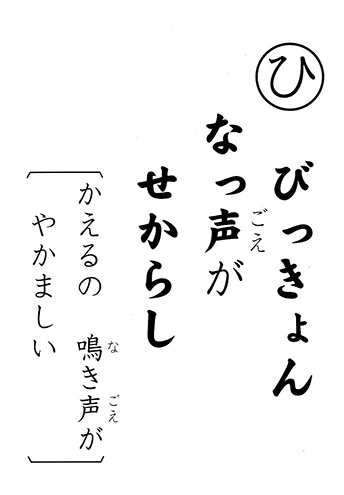 ひ
びっきょん
なっ声が
ごえ
せからし
かえるの 鳴き声が
な ごえ
やかましい